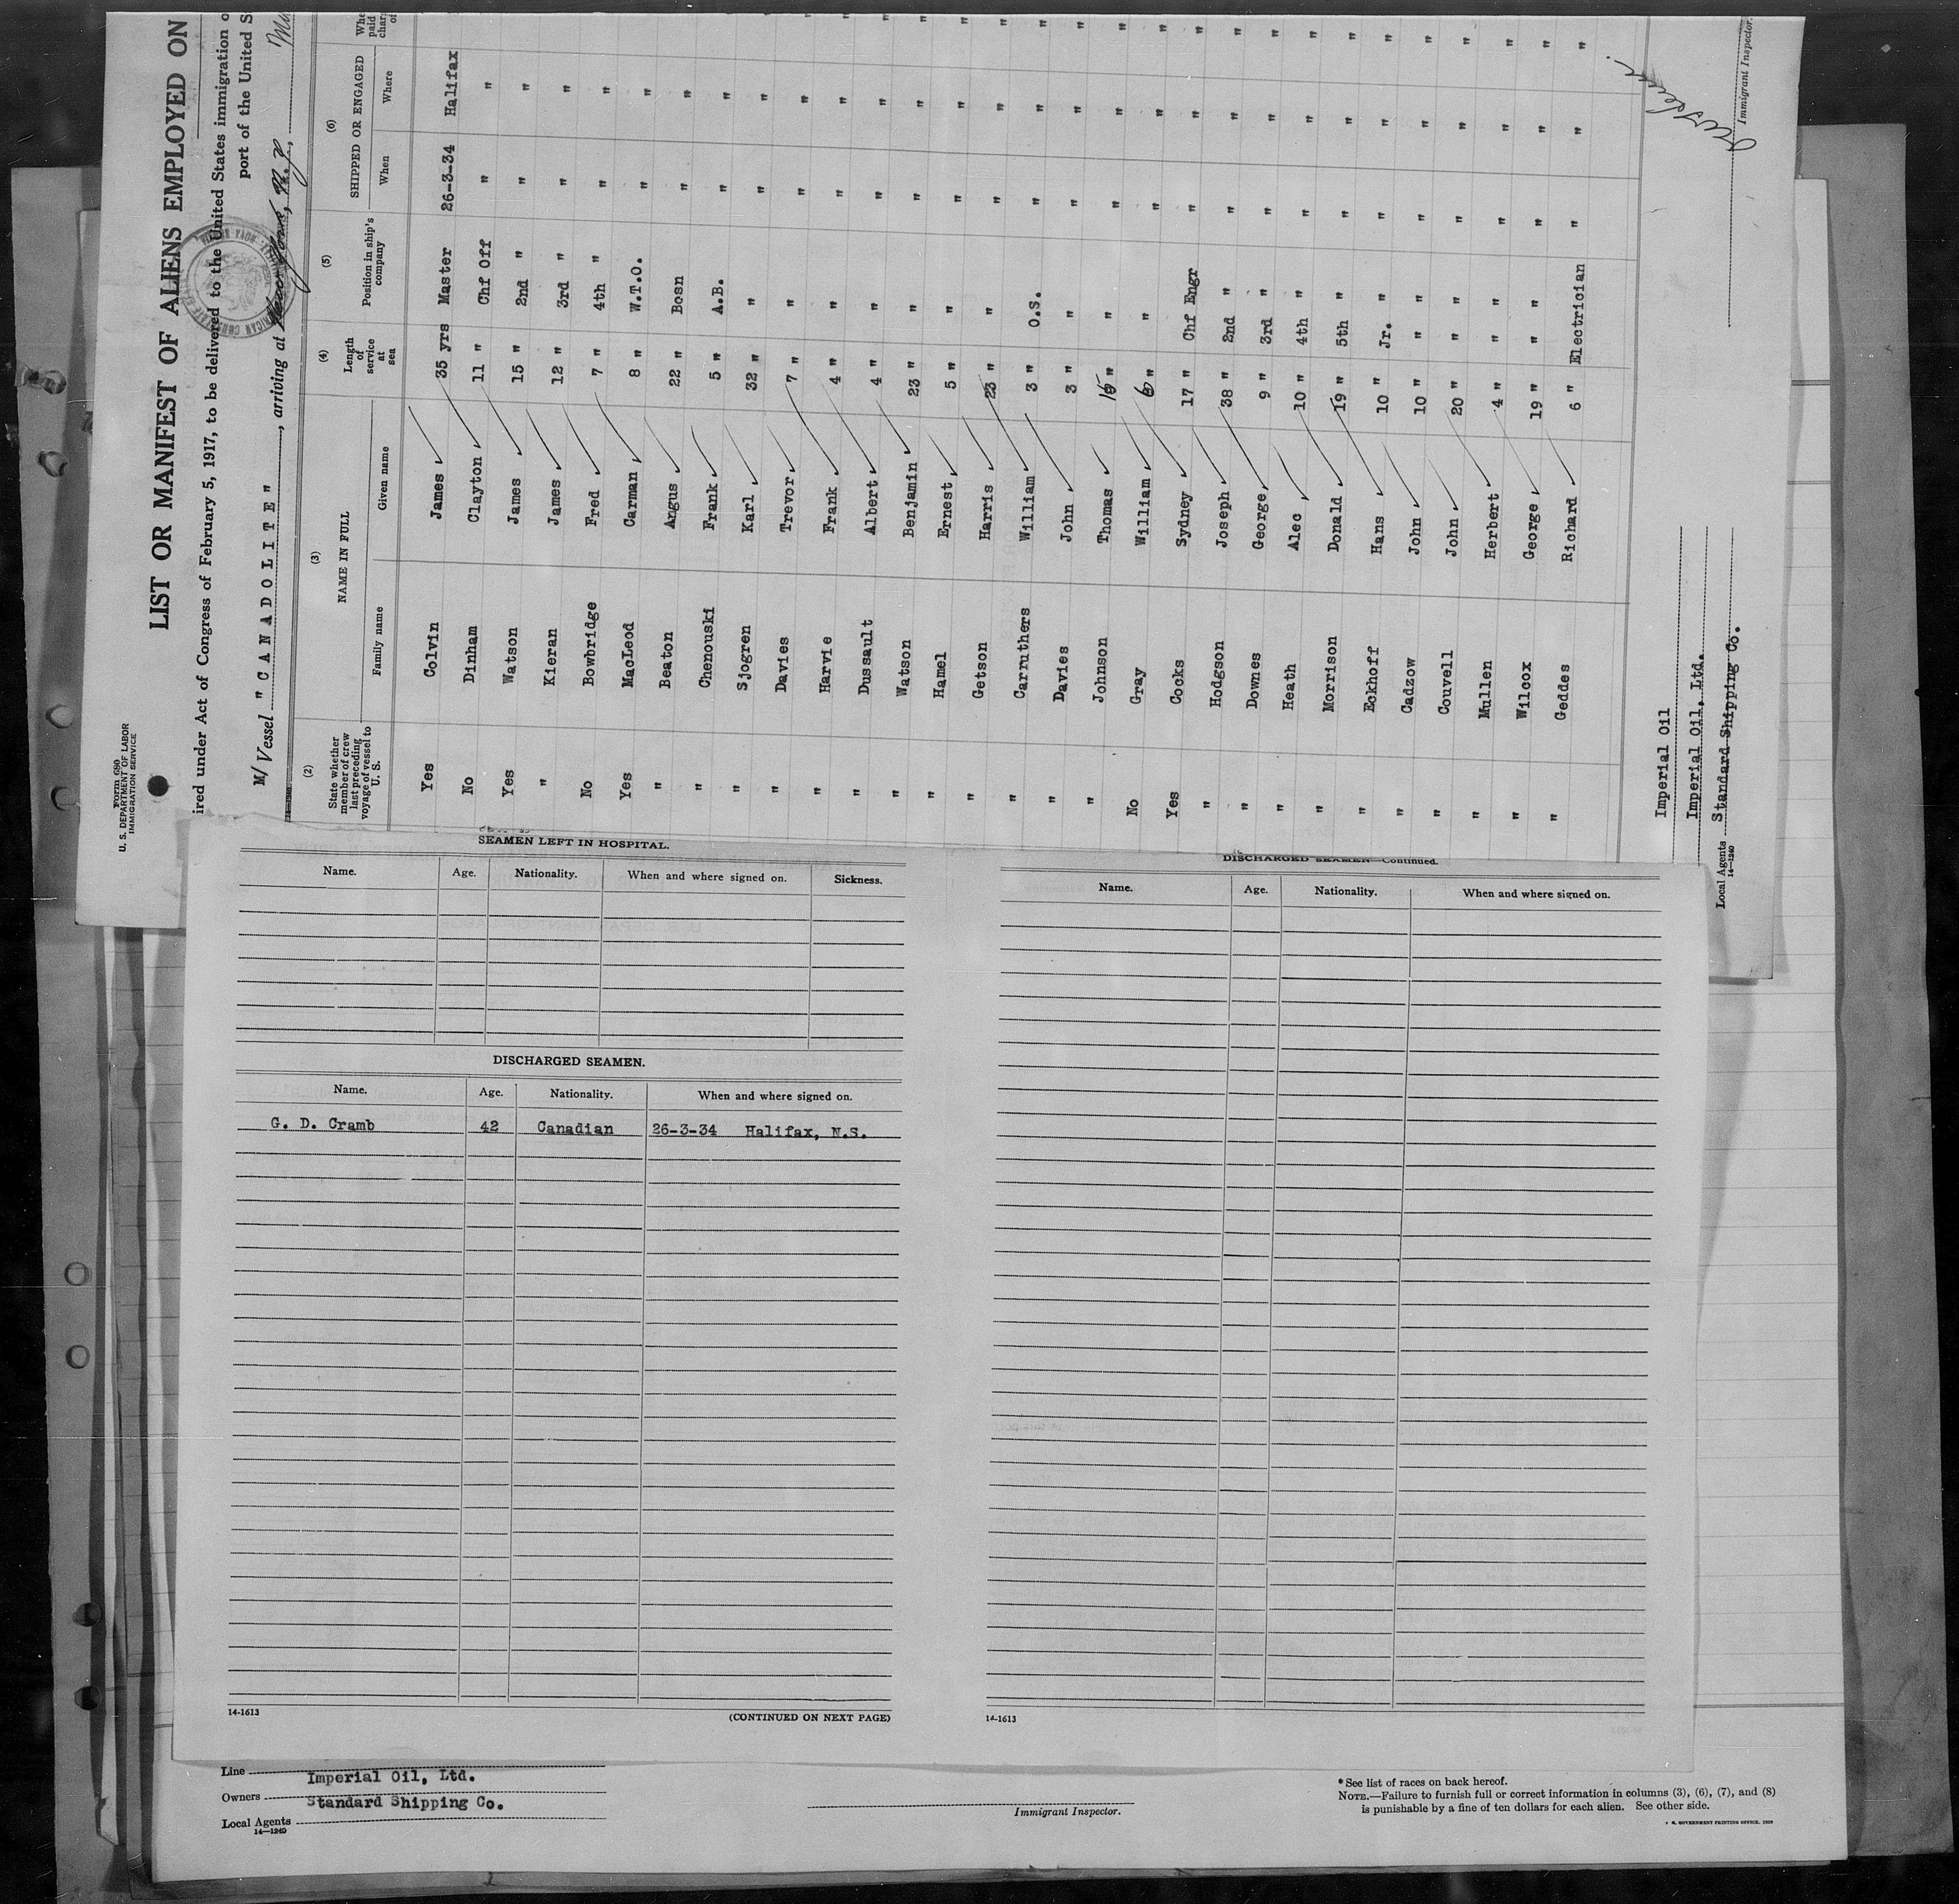 Form 680
U. S. DEPARTMENT OF LABOR
IMMIGRATION SERVICE
LIST OR MANIFEST OF ALIENS EMPLOYED ON
ired under Act of Congress of February 5, 1917, to be delivered to the United States immigration o
port of the United S
M/ Vessel "CANADOLITE", arriving at
(2) (3) (4) (5) (6)
State whether member of crew last preceding voyage of vessel to U. S.
NAME IN FULL
Family name Given name
Length of service at sea
Position in ship's company
SHIPPED OR ENGAGED
When Where
Yes Colvin James 35 yrs Master 26-3-34 Halifax
No Dinham Clayton 11 " Chf Off " " "
Yes Watson James 15 " 2nd " " " "
" Kieran James 12 " 3rd " " " "
No Bowbridge Fred 7 " 4th " " " "
Yes MacLeod Carman 8 " W.T.O. " " "
" Beaton Angus 22 " Bosn " " "
" Chenouski Frank 5 " A.B. " " "
" Sjogren Karl 32 " " " " "
" Davies Trevor 7 " " " " "
" Harvie Frank 4 " " " " "
" Dussault Albert 4 " " " " "
" Watson Benjamin 23 " " " " "
" Hamel Ernest 5 " " " " "
" Getson Harris 23 " " " " "
" Carruthers William 3 " O.S. " " "
" Davies John 3 " " " " "
" Johnson Thomas " " " " "
No Gray William " " " " "
Yes Cocks Sydney 17 " Chf Engr " " "
" Hodgson Joseph 38 " 2nd " " " "
" Downes George 9 " 3rd " " " "
" Heath Alec 10 " 4th " " " "
" Morrison Donald 19 " 5th " " " "
" Eckhoff Hans 10 " Jr. " " " "
" Cadzow John 10 " " " " " "
" Couvell John 20 " " " " " "
" Mullen Herbert 4 " " " " " "
" Wilcox George 19 " " " " " "
" Geddes Richard 6 " Electrician " " "
Imperial Oil
Imperial Oil, Ltd.
Local Agents Standard Shipping Co.
14-1240
Immigrant Inspector.
SEAMEN LEFT IN HOSPITAL.
Name. Age. Nationality. When and where signed on. Sickness.
DISCHARGED SEAMEN.
Name. Age. Nationality. When and where signed on.
G. D. Cramb 42 Canadian 26-3-34 Halifax, N.S.
14-1613
(CONTINUED ON NEXT PAGE)
DISCHARGED SEAMEN—Continued.
Name. Age. Nationality. When and where signed on.
14-1613
Line
Imperial Oil, Ltd.
Owners
Standard Shipping Co.
Local Agents
14-1240
Immigrant Inspector.
* See list of races on back hereof.
NOTE.—Failure to furnish full or correct information in columns (3), (6), (7), and (8)
is punishable by a fine of ten dollars for each alien. See other side.
GOVERNMENT PRINTING OFFICE. 1929